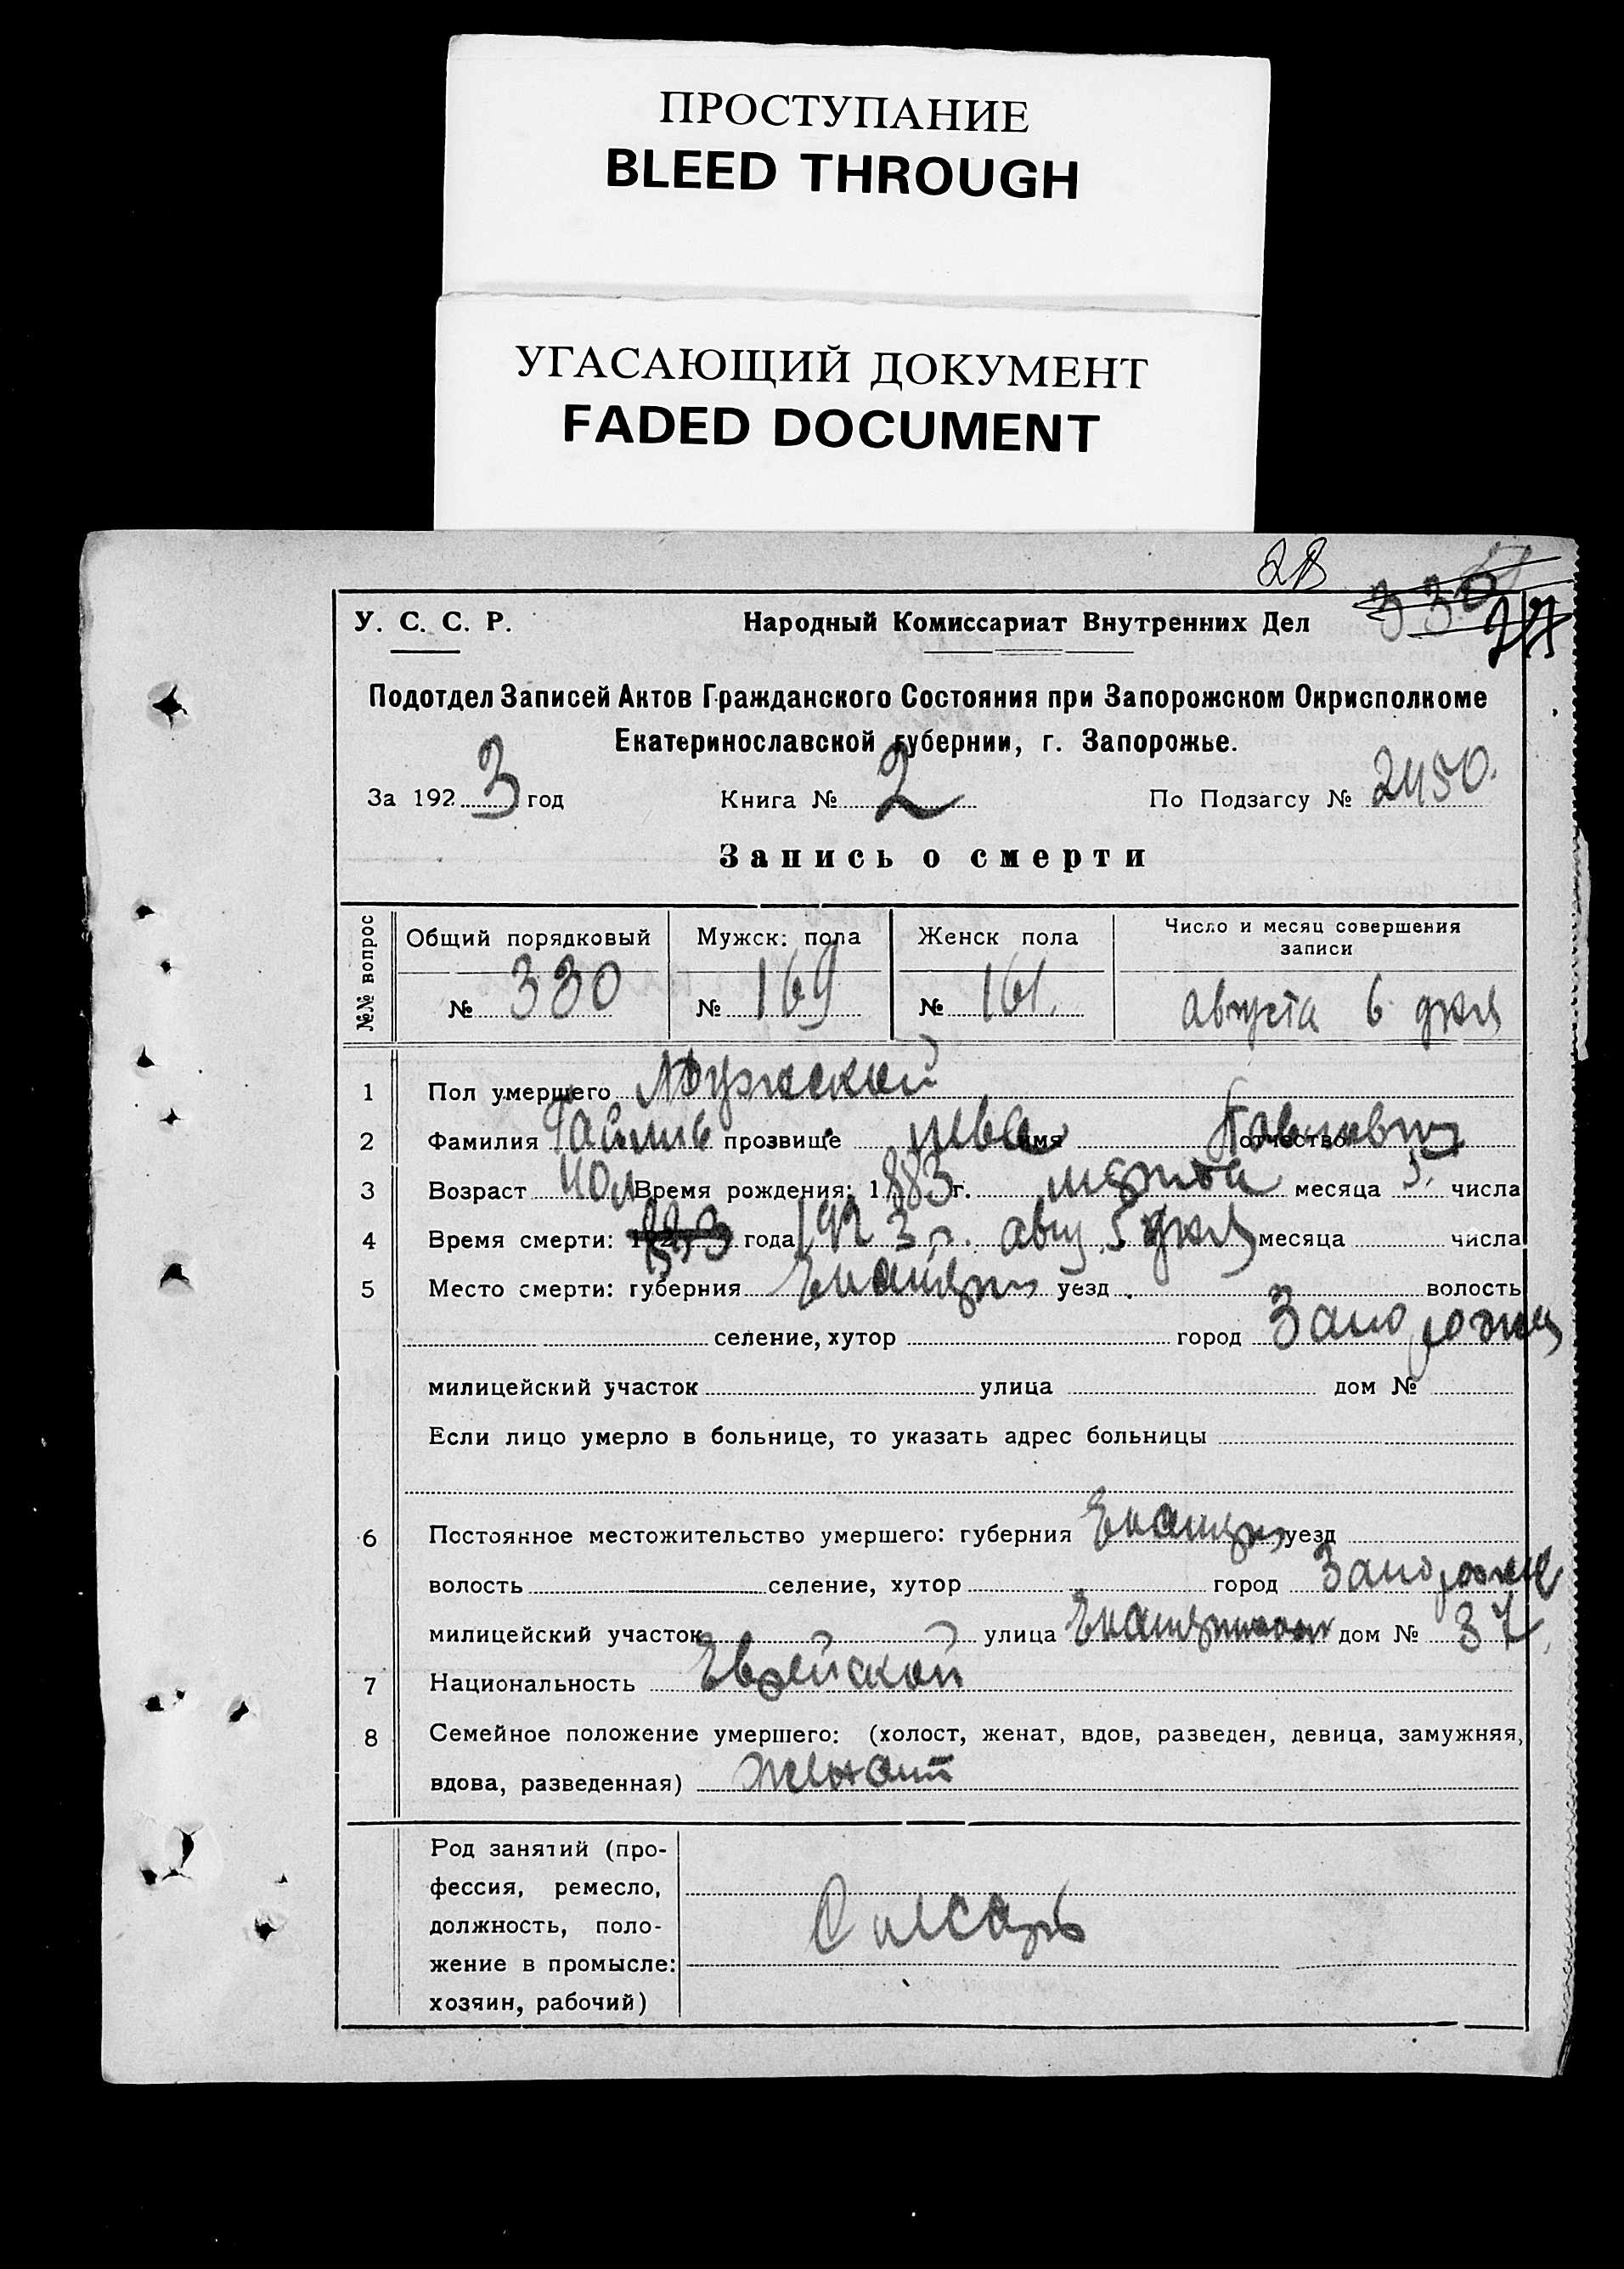 ПРОСТУПАНИЕ
BLEED THROUGH
УГАСАЮЩИЙ ДОКУМЕНТ
FADED DOCUMENT
28
330
У. С. С. Р. Народный Комиссариат Внутренних Дел
Подотдел Записей Актов Гражданского Состояния при Запорожском Окрисполкоме
Екатеринославской губернии, г. Запорожье.
За 1923 год Книга № 2 По Подзагсу № 2450.
Запись о смерти
№№ вопрос
Общий порядковый Мужск: пола Женск пола Число и месяц совершения
записи
№ 330 № 169 № 161. августа 6 дня
1 Пол умершего Мужской
2 Фамилия прозвище имя отчество
3 Возраст 40 л Время рождения: 1883 г. марта месяца 5. числа
4 Время смерти: года 1923 г. авг 5 дня месяца числа
5 Место смерти: губерния Екатерин уезд волость
селение, хутор город Запорожец
милицейский участок улица дом №
Если лицо умерло в больнице, то указать адрес больницы
6 Постоянное местожительство умершего: губерния Екатерин уезд
волость селение, хутор город Запорожье
милицейский участок улица дом № 37
7 Национальность Еврейской
8 Семейное положение умершего: (холост, женат, вдов, разведен, девица, замужняя,
вдова, разведенная) женат
Род занятий (про-
фессия, ремесло,
должность, поло-
жение в промысле:
хозяин, рабочий)
Слесарь